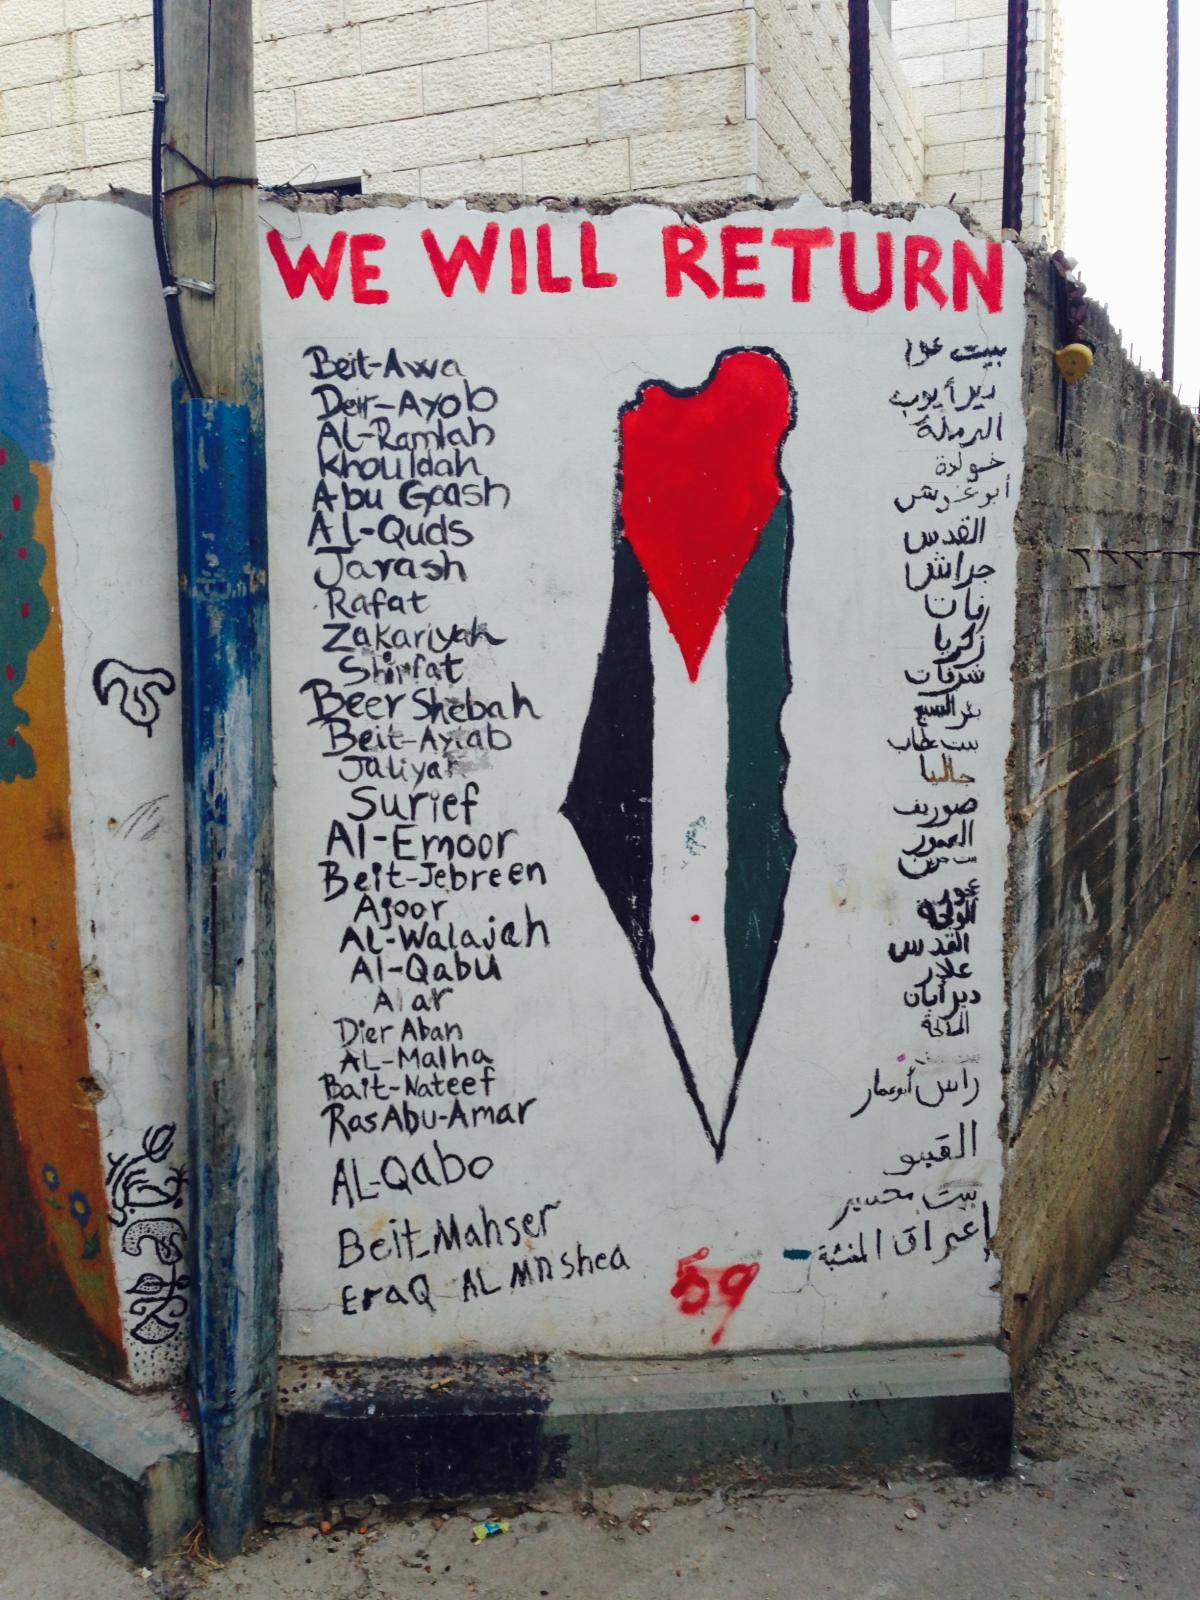 WE WILL RETURN
Beit-Awa
Deir-Ayob
AL-Ramlah
Khouldah
Abu Goash
Al-Quds
Jarash
Rafat
Zakariyah
Shirfat
Beer Shebah
Beit-Aytab
Jaliya
Surief
Al-Emoor
Beit-Jebreen
Ajoor
AL-Walajah
Al-Qabu
Alar
Dier Aban
AL-Malha
Bait-Nateef
Ras Abu-Amar
AL-Qabo
Beit-Mahser
EraQ AL MnShea
بيت عوا
دير أيوب
الرملة
خولدة
أبو غوش
القدس
جراش
رفات
زكريا
شرفات
بئر السبع
بيت عطاب
جاليا
صوريف
العمور
بيت جبرين
عجور
الولجة
القدس
علار
دير أبان
المالحة
راس أبو عمار
القبو
بيت محسير
إعراق المنشية
59